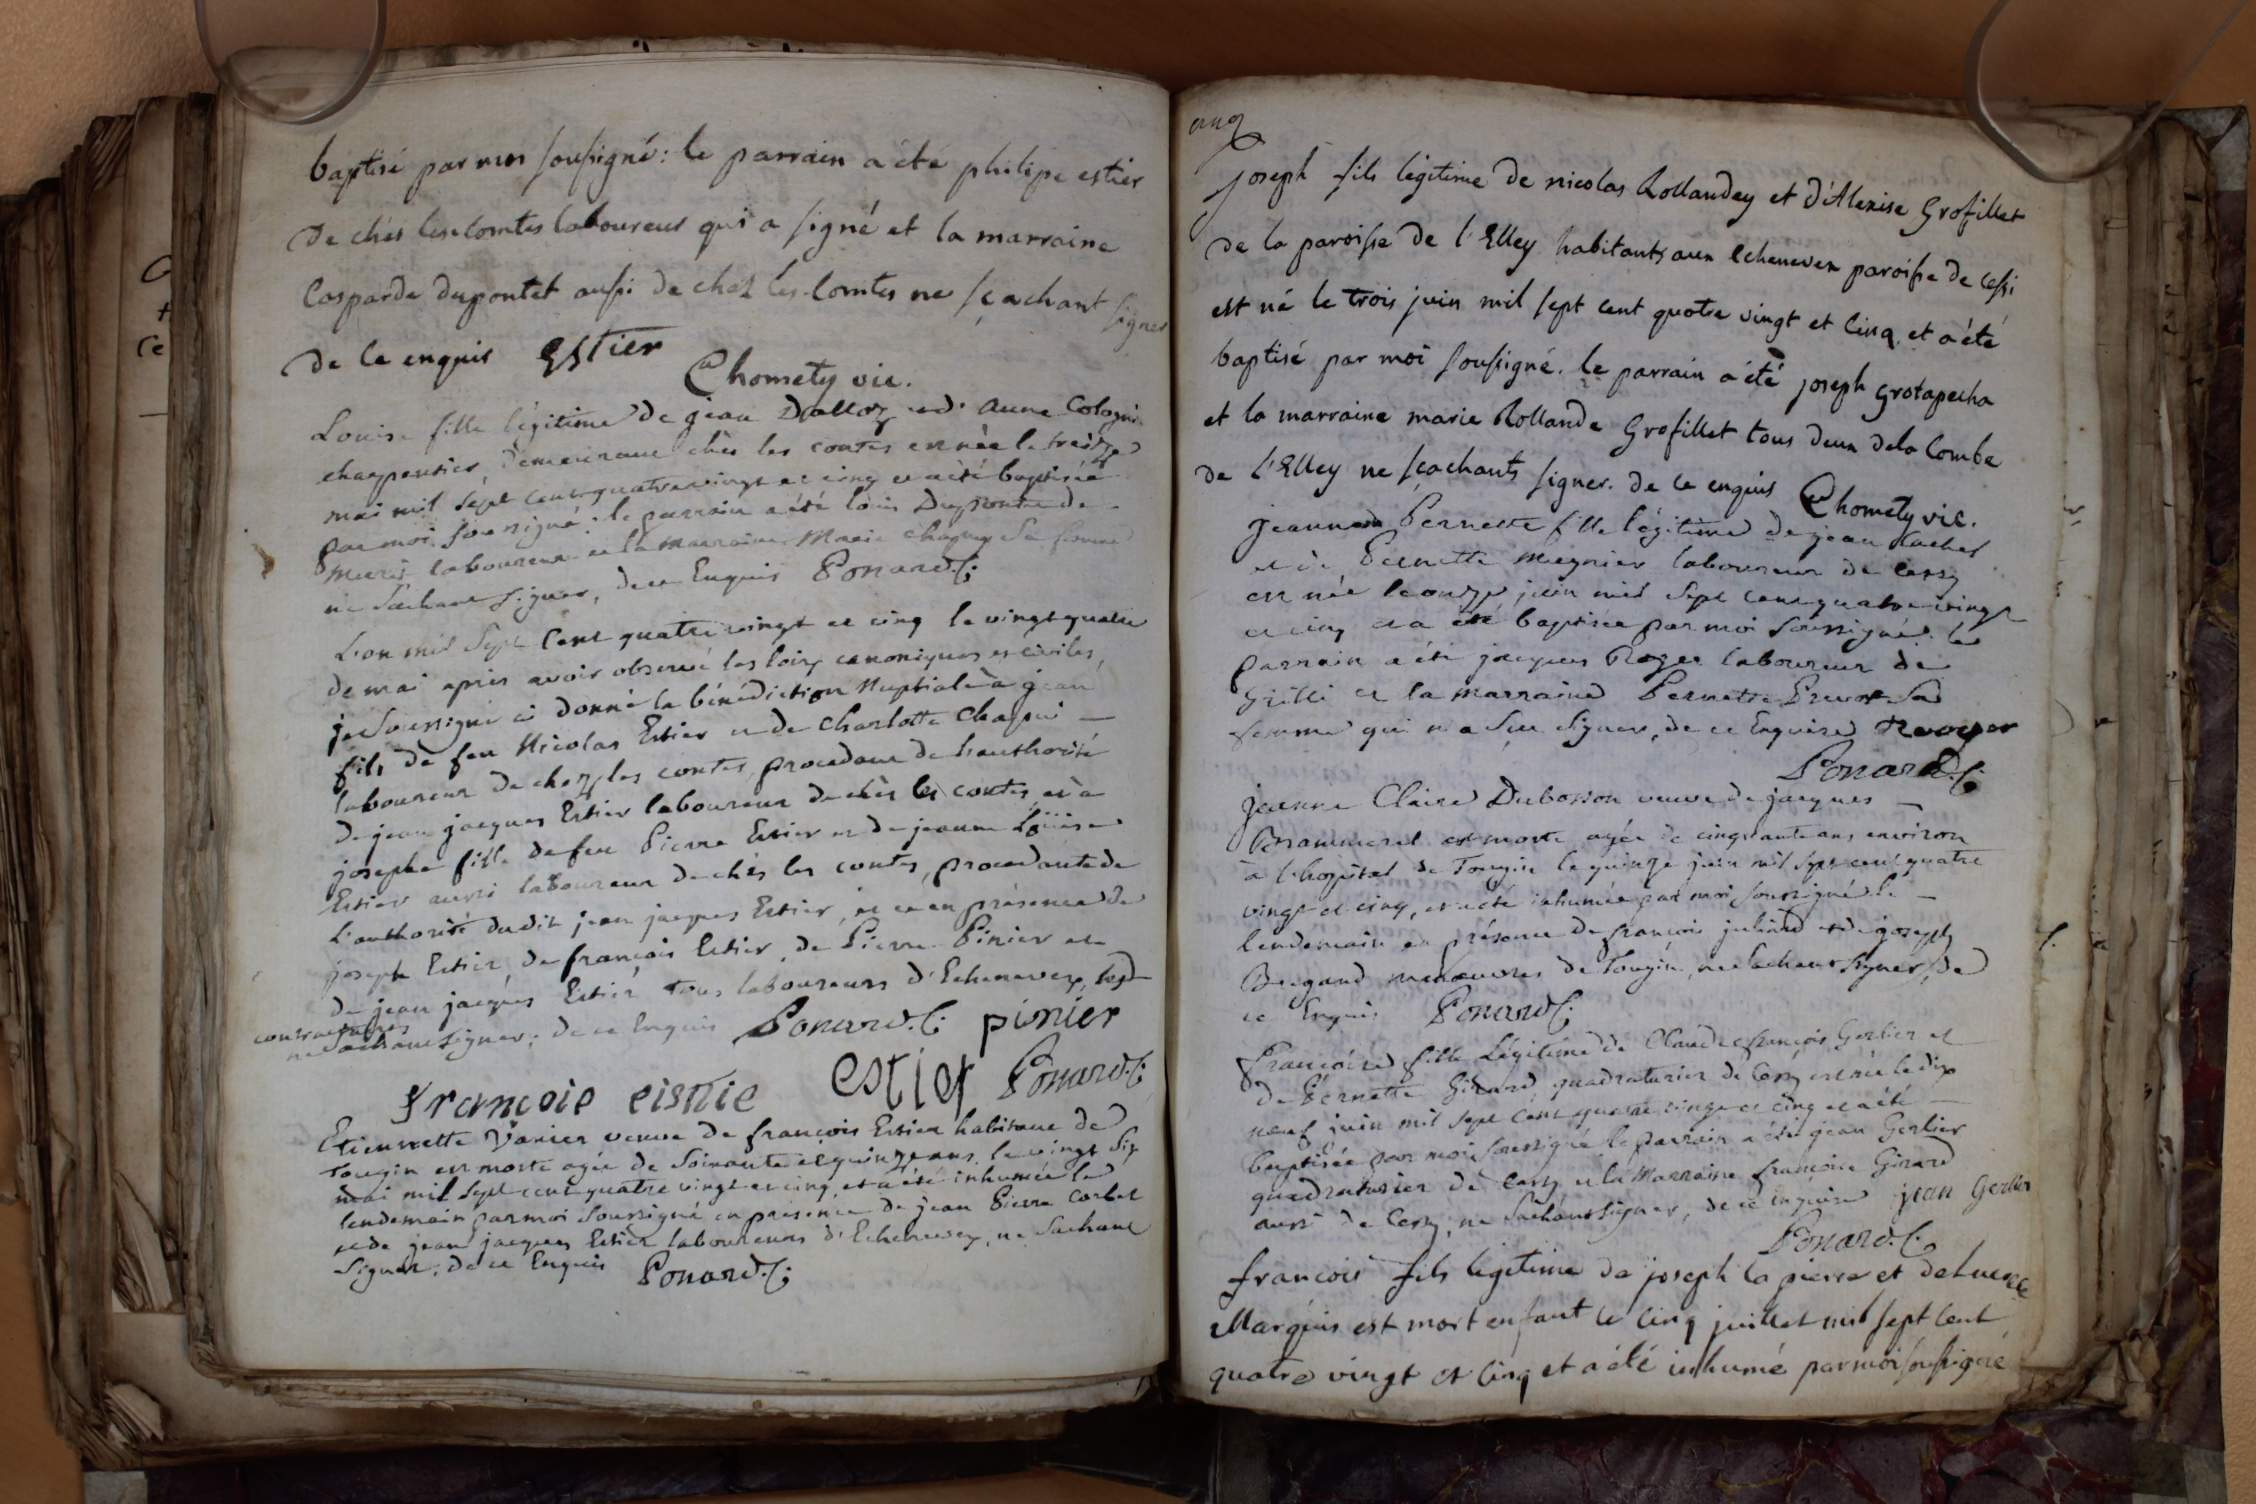 baptisé par moi soussigné: le parrain a été philipe estier
de chés les comtes laboureur qui a signé et la marraine
Casparde dupontet aussi de chez les Comtes ne sçachant signer
de ce enquis Estier
Chomety vic.
Louise fille légitime de jean Dalloz et d'anne Cologni
charpentier, demeurant chès les contes est née le treize
mai mil sept cent quatre vingt et cinq et a été baptisée
par moi soussigné. le parrain a été louis Dupontet de
laboureur et la marraine Marie Chapuy sa femme
ne sachant signer, de ce Enquis Ponard. C:
L'an mil sept cent quatre vingt et cinq le vingt quatre
de mai après avoir observé les loix canoniques et civiles,
je soussigné ai donné la bénédiction Nuptiale à jean
fils de feu Nicolas Estier et de Charlotte Chapui
laboureur de chez les contes, procedant de l'authorité
de jean jacques Estier laboureur de chès les contes, et à
josephe fille de feu Pierre Estier et de jeanne Loüise
Estier aussi laboureur de chés les contes, procedante de
L'authorité dudit jean jacques Estier, et ce en présence de
joseph Estier, de françois Estier, de Pierre Pinier et
de jean jacques Estier tous laboureurs d'Echenevex,
contractantes
ne sachant signer; de ce Enquis Ponard. C: pinier
françoie eistie estier Ponard. C:
Etiennette Vanier veuve de françois Estier habitant de
Tougin est morte agée de soixante et quinze ans le vingt six
mai mil sept cent quatre vingt et cinq, et a été inhumée le
lendemain par moi soussigné en présence de jean Pierre Corbet
et de jean jacques Estier laboureurs d'Echenevex, ne sachant
signer, de ce Enquis Ponard. C:
cinq
joseph fils légitime de nicolas Rollandey et d'Alexise Grofillet
de la paroisse de l'Elley habitants aux Echenevex paroisse de Cessi
est né le trois juin mil sept cent quatre vingt et cinq et a été
baptisé par moi soussigné. le parrain a été joseph grotapecha
et la marraine marie Rollande Grofillet tous deux de la Combe
de l'Elley ne sçachants signer. de ce enquis Chomety vic.
Pernette fille légitime de jean
et de Pernette Megnier laboureur de Cessy
est née le onze juin mil sept cent quatre vingt
et cinq et a été baptisée par moi soussigné. le
parrain a été jacques Roger laboureur de
Grilli et la marraine Pernette Prevot sa
femme qui n'a seu signer, de ce Enquise Rooger
Ponard. C:
jeanne Claire Dubosson veuve de jacques
Brammerel est morte agée de cinquante ans environ
à l'hopital de Tougin le quinze juin mil sept cent quatre
vingt et cinq, et a été inhumée par moi soussigné le
lendemain en présence de françois juliard et de joseph
Bregand manœuvres de Tougin, ne sachant signer, de
ce Enquis Ponard C:
Françoise fille Légitime de Claude françois Gerlier et
de Pernette Girard quadraturier de Cessy est née le dix
neuf juin mil sept cent quatre vingt et cinq et a été
baptisée par moi soussigné le parrain a été jean Gerlier
quadraturier de Cessy et la Marraine françoise Girard
aussi de Cessy, ne sachant signer, de ce enquise jean Gerlier
Ponard. C:
francois fils légitime de joseph la pierre et de Lucrece
Marquis est mort enfant le cinq juillet mil sept cent
quatre vingt et cinq et a été inhumé par moi soussigné